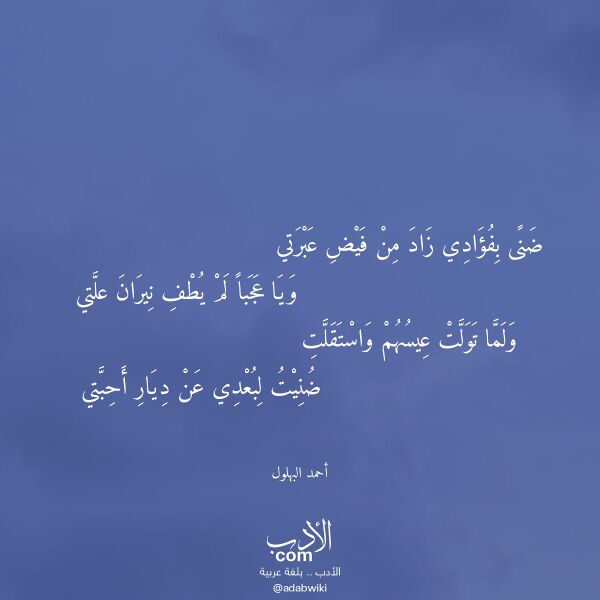 ضَنًى بِفُؤَادِي زَادَ مِنْ فَيْضِ عَبْرَتي
وَيَا عَجَباً لَمْ يُطْفِ نِيرَانَ علَّتي
وَلَمَّا تَوَلَّتْ عِيسُهُمْ وَاسْتَقَلَّتِ
ضُنِيْتُ لِبُعْدِي عَنْ دِيَارِ أَحِبَّتي
أحمد البهلول
الأدب
com
الأدب .. بلغة عربية
@adabwiki